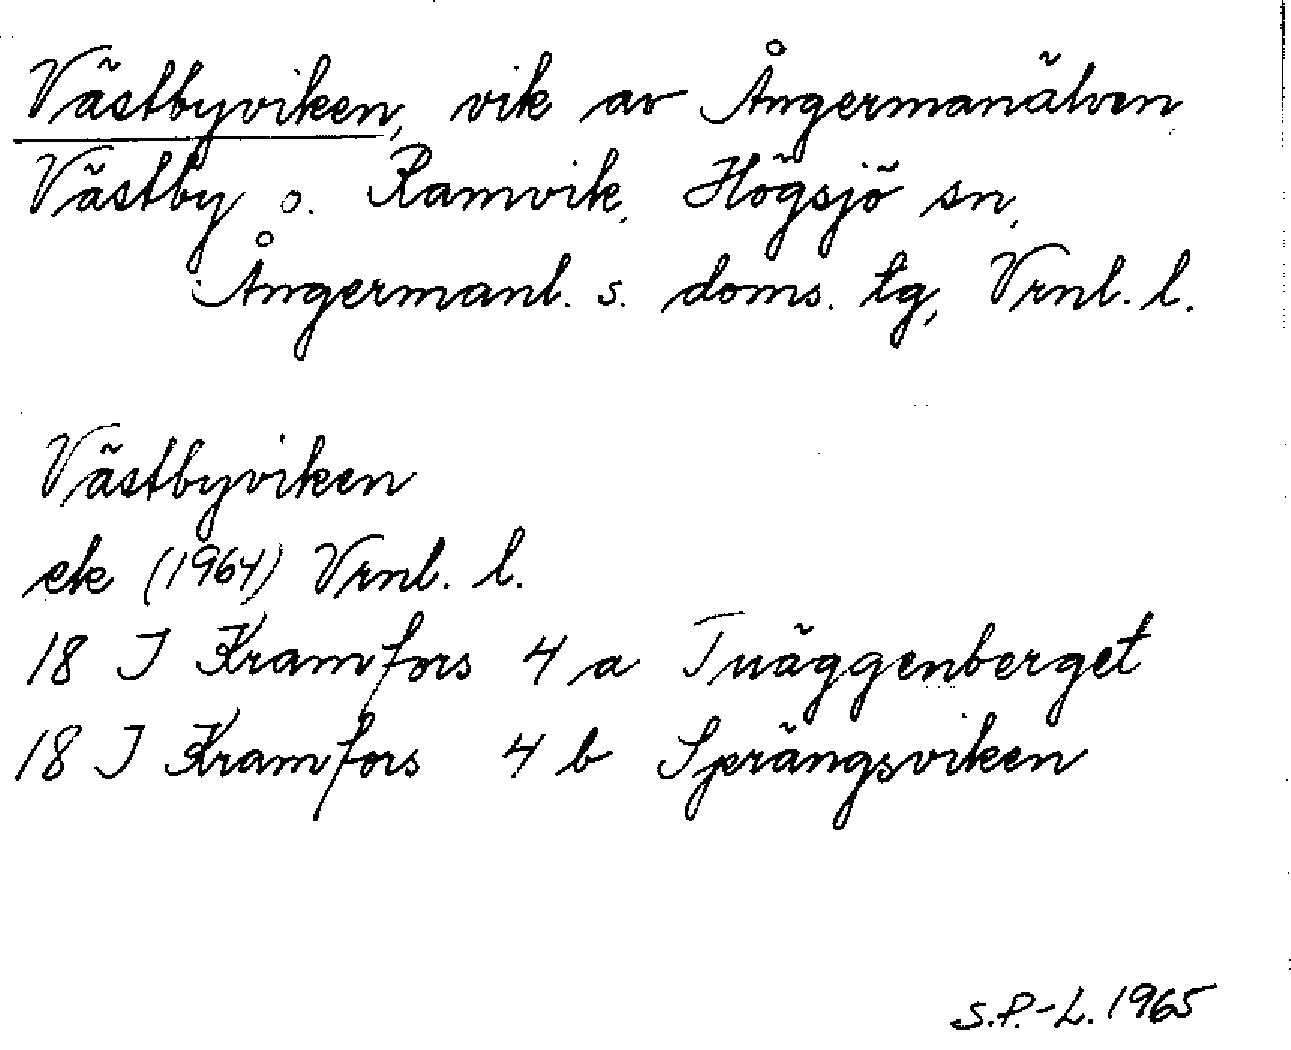 Västbyviken, vik av Ångermanälven
Västby o. Ramvik, Högsjö sn,
Ångermanl. s. doms. tg, Vrnl. l.
Västbyviken
ek (1964) Vrnl. l.
18 I Kramfors 4 a Tväggenberget
18 I Kramfors 4 b Sprängsviken
S.P.-L. 1965